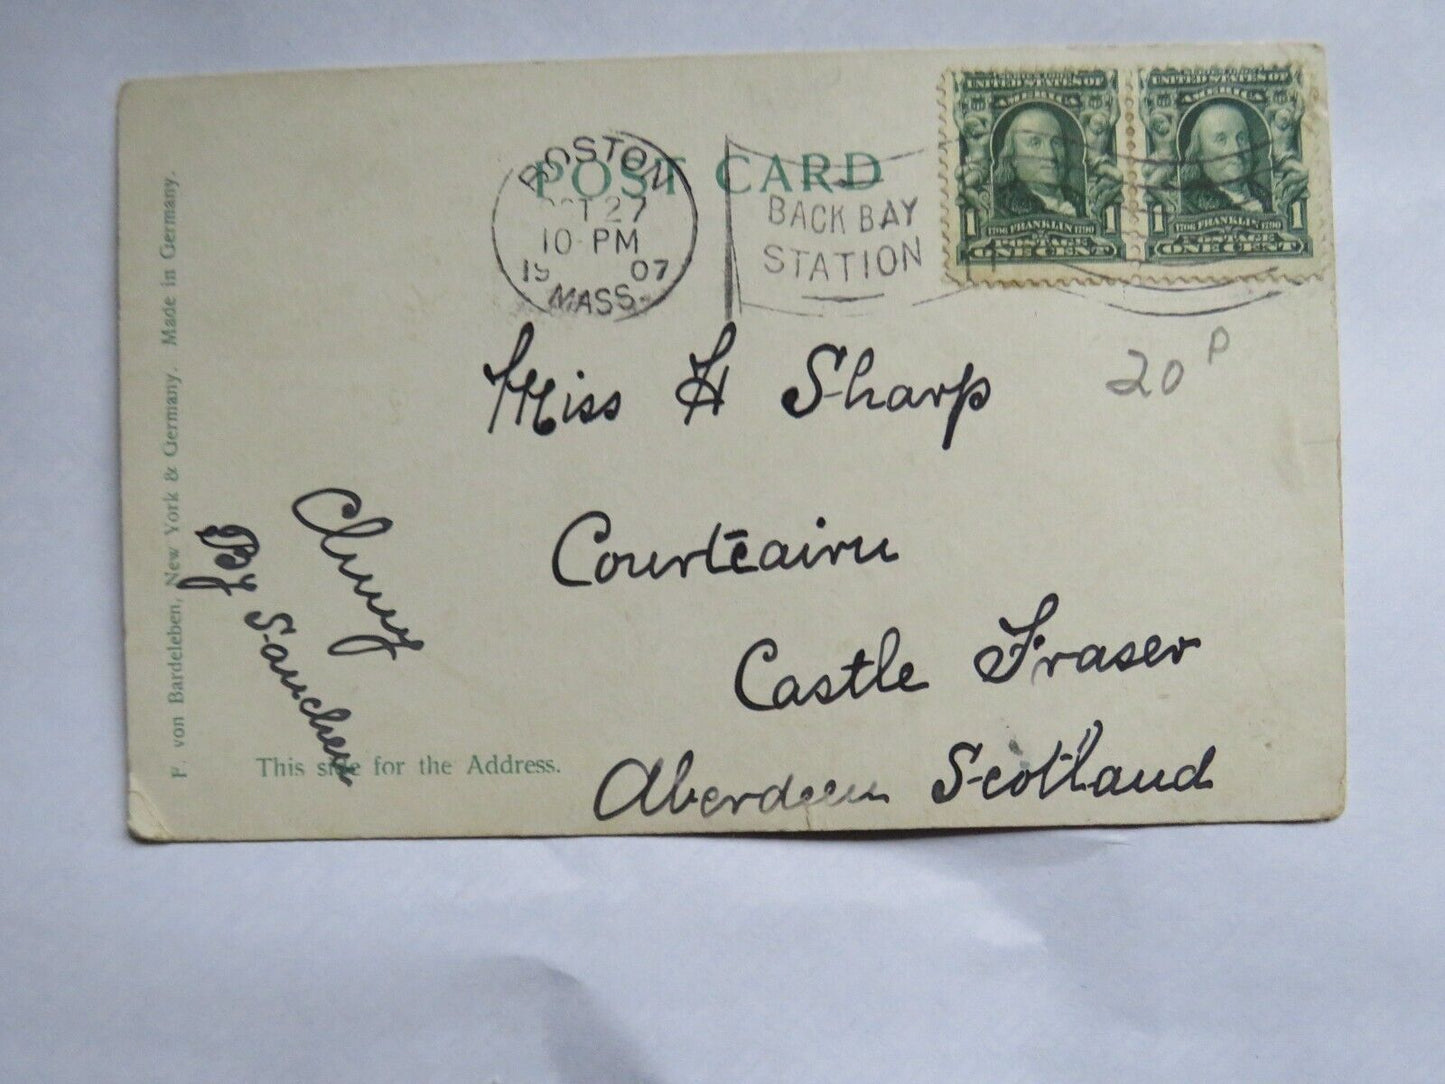 POST CARD
BOSTON
OCT 27
10 - PM
19 07
MASS.
BACK BAY
STATION
UNITED STATES OF
AMERICA
1 1706 FRANKLIN 1790 1
POSTAGE
ONE CENT
UNITED STATES OF
AMERICA
1 1706 FRANKLIN 1790 1
POSTAGE
ONE CENT
Miss H Sharp
20 P
Courtcairn
Castle Fraser
Aberdeen Scotland
Cluny
By Sauchen
This side for the Address.
F. von Bardeleben, New York & Germany. Made in Germany.